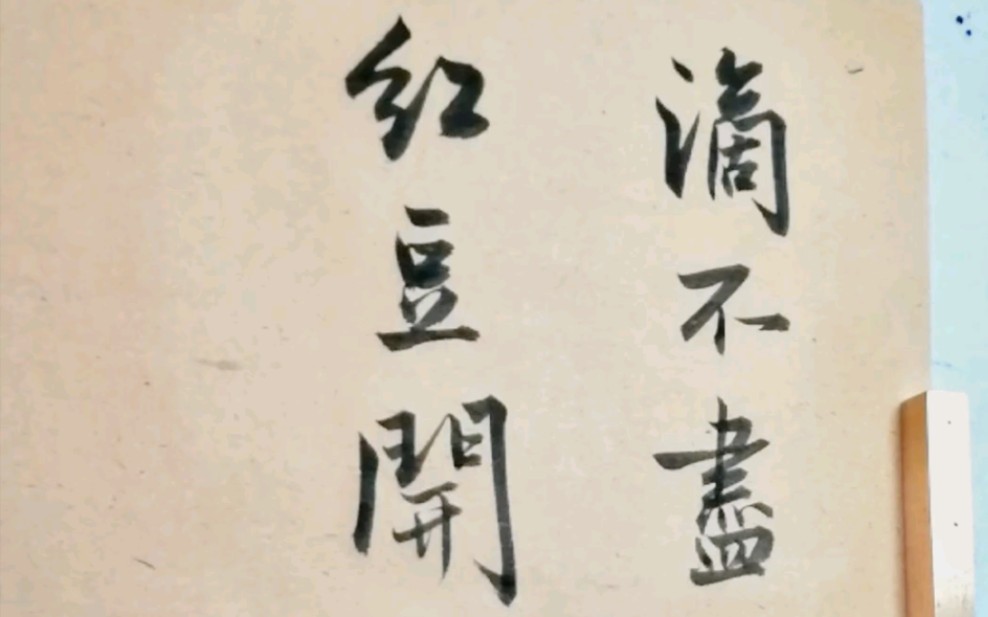 滴不盡
紅豆開